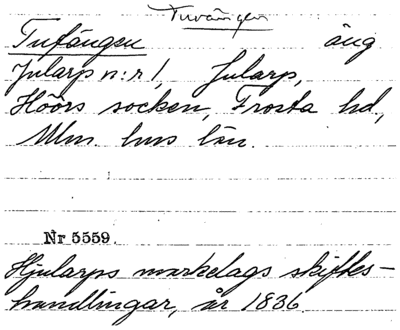 Tuvängen
Tufängen äng
Jularp n:r 1, Jularp,
Höörs socken, Frosta hd,
Mlm. hus län.
Nr 5559.
Hjularps markelags skiftes-
handlingar, år 1836.